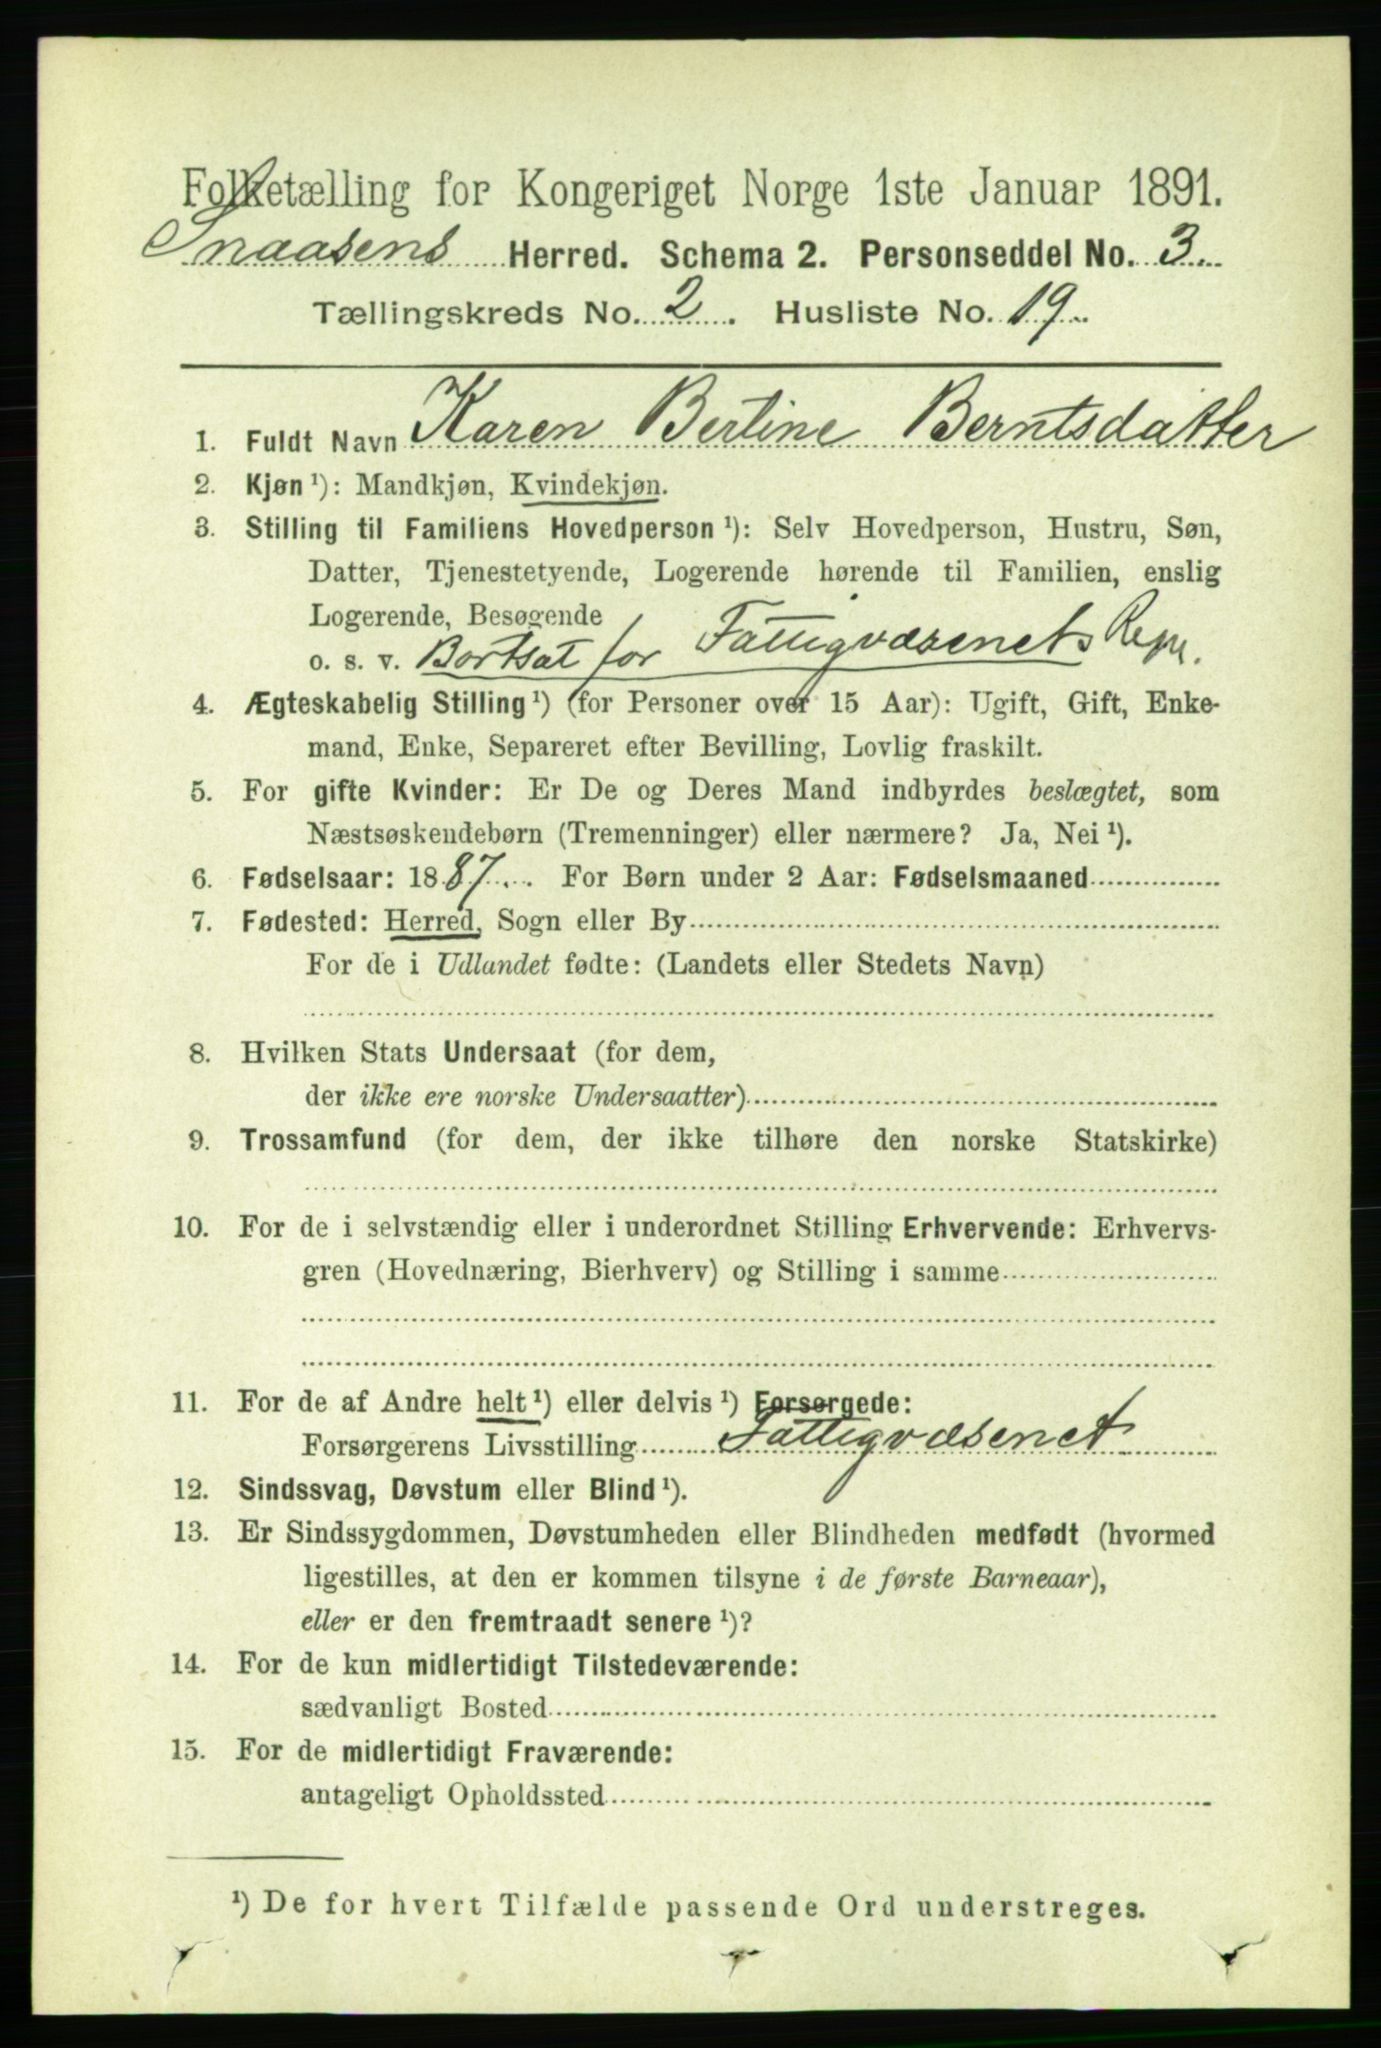 Folketælling for Kongeriget Norge 1ste Januar 1891.
Snaasens Herred. Schema 2. Personseddel No. 3
Tællingskreds No. 2. Husliste No. 19
1. Fuldt Navn Karen Bertine Berntsdatter
2. Kjøn ¹): Mandkjøn, Kvindekjøn.
3. Stilling til Familiens Hovedperson ¹): Selv Hovedperson, Hustru, Søn,
Datter, Tjenestetyende, Logerende hørende til Familien, enslig
Logerende, Besøgende
o. s. v. Bortsat for Fattigvæsenets Regn.
4. Ægteskabelig Stilling ¹) (for Personer over 15 Aar): Ugift, Gift, Enke-
mand, Enke, Separeret efter Bevilling, Lovlig fraskilt.
5. For gifte Kvinder: Er De og Deres Mand indbyrdes beslægtet, som
Næstsøskendebørn (Tremenninger) eller nærmere? Ja, Nei ¹).
6. Fødselsaar: 1887. For Børn under 2 Aar: Fødselsmaaned
7. Fødested: Herred, Sogn eller By
For de i Udlandet fødte: (Landets eller Stedets Navn)
8. Hvilken Stats Undersaat (for dem,
der ikke ere norske Undersaatter)
9. Trossamfund (for dem, der ikke tilhøre den norske Statskirke)
10. For de i selvstændig eller i underordnet Stilling Erhvervende: Erhvervs-
gren (Hovednæring, Bierhverv) og Stilling i samme
11. For de af Andre helt ¹) eller delvis ¹) Forsørgede:
Forsørgerens Livsstilling Fattigvæsenet
12. Sindssvag, Døvstum eller Blind ¹).
13. Er Sindssygdommen, Døvstumheden eller Blindheden medfødt (hvormed
ligestilles, at den er kommen tilsyne i de første Barneaar),
eller er den fremtraadt senere ¹)?
14. For de kun midlertidigt Tilstedeværende:
sædvanligt Bosted
15. For de midlertidigt Fraværende:
antageligt Opholdssted
¹) De for hvert Tilfælde passende Ord understreges.